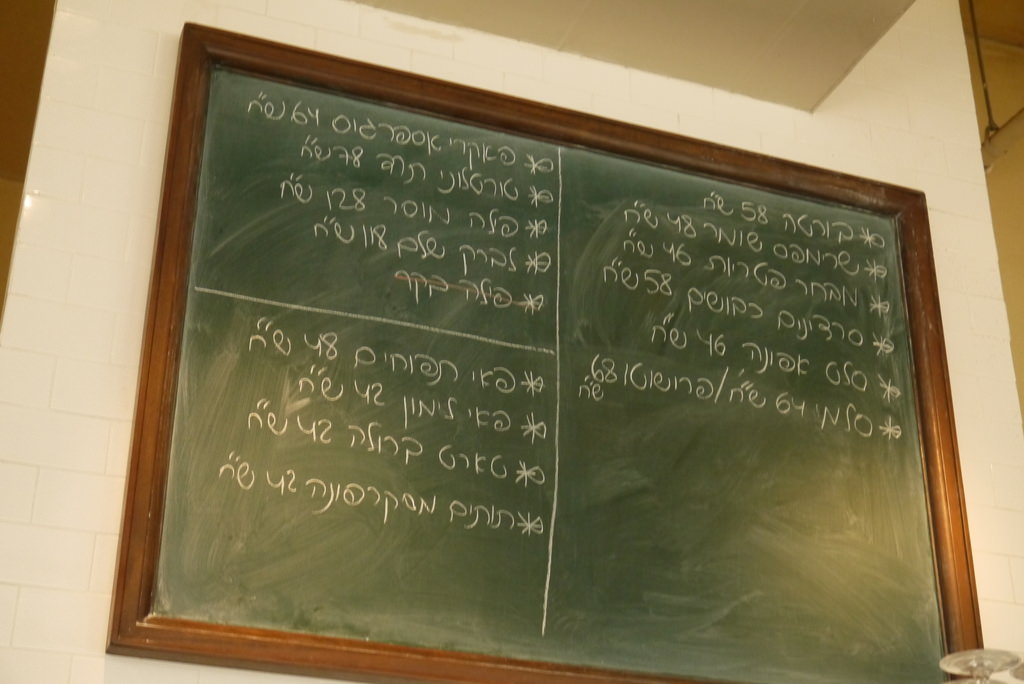 * בורטה 58 ש"ח
* שרימפס שומר 48 ש"ח
* מבחר פטריות 46 ש"ח
* סרדינים כבושים 58 ש"ח
* סלט אפונה 46 ש"ח
* סלמי 64 ש"ח/פרושוטו 68 ש"ח
* פאקרי אספרגוס 64 ש"ח
* טורטלוני תרד 78 ש"ח
* פלה מוסר 128 ש"ח
* לברק שלם ש"ח
* פילה בקר
* פאי תפוחים 48 ש"ח
* פאי לימון 42 ש"ח
* טארט ברולה 42 ש"ח
* תותים מסקרפונה 42 ש"ח